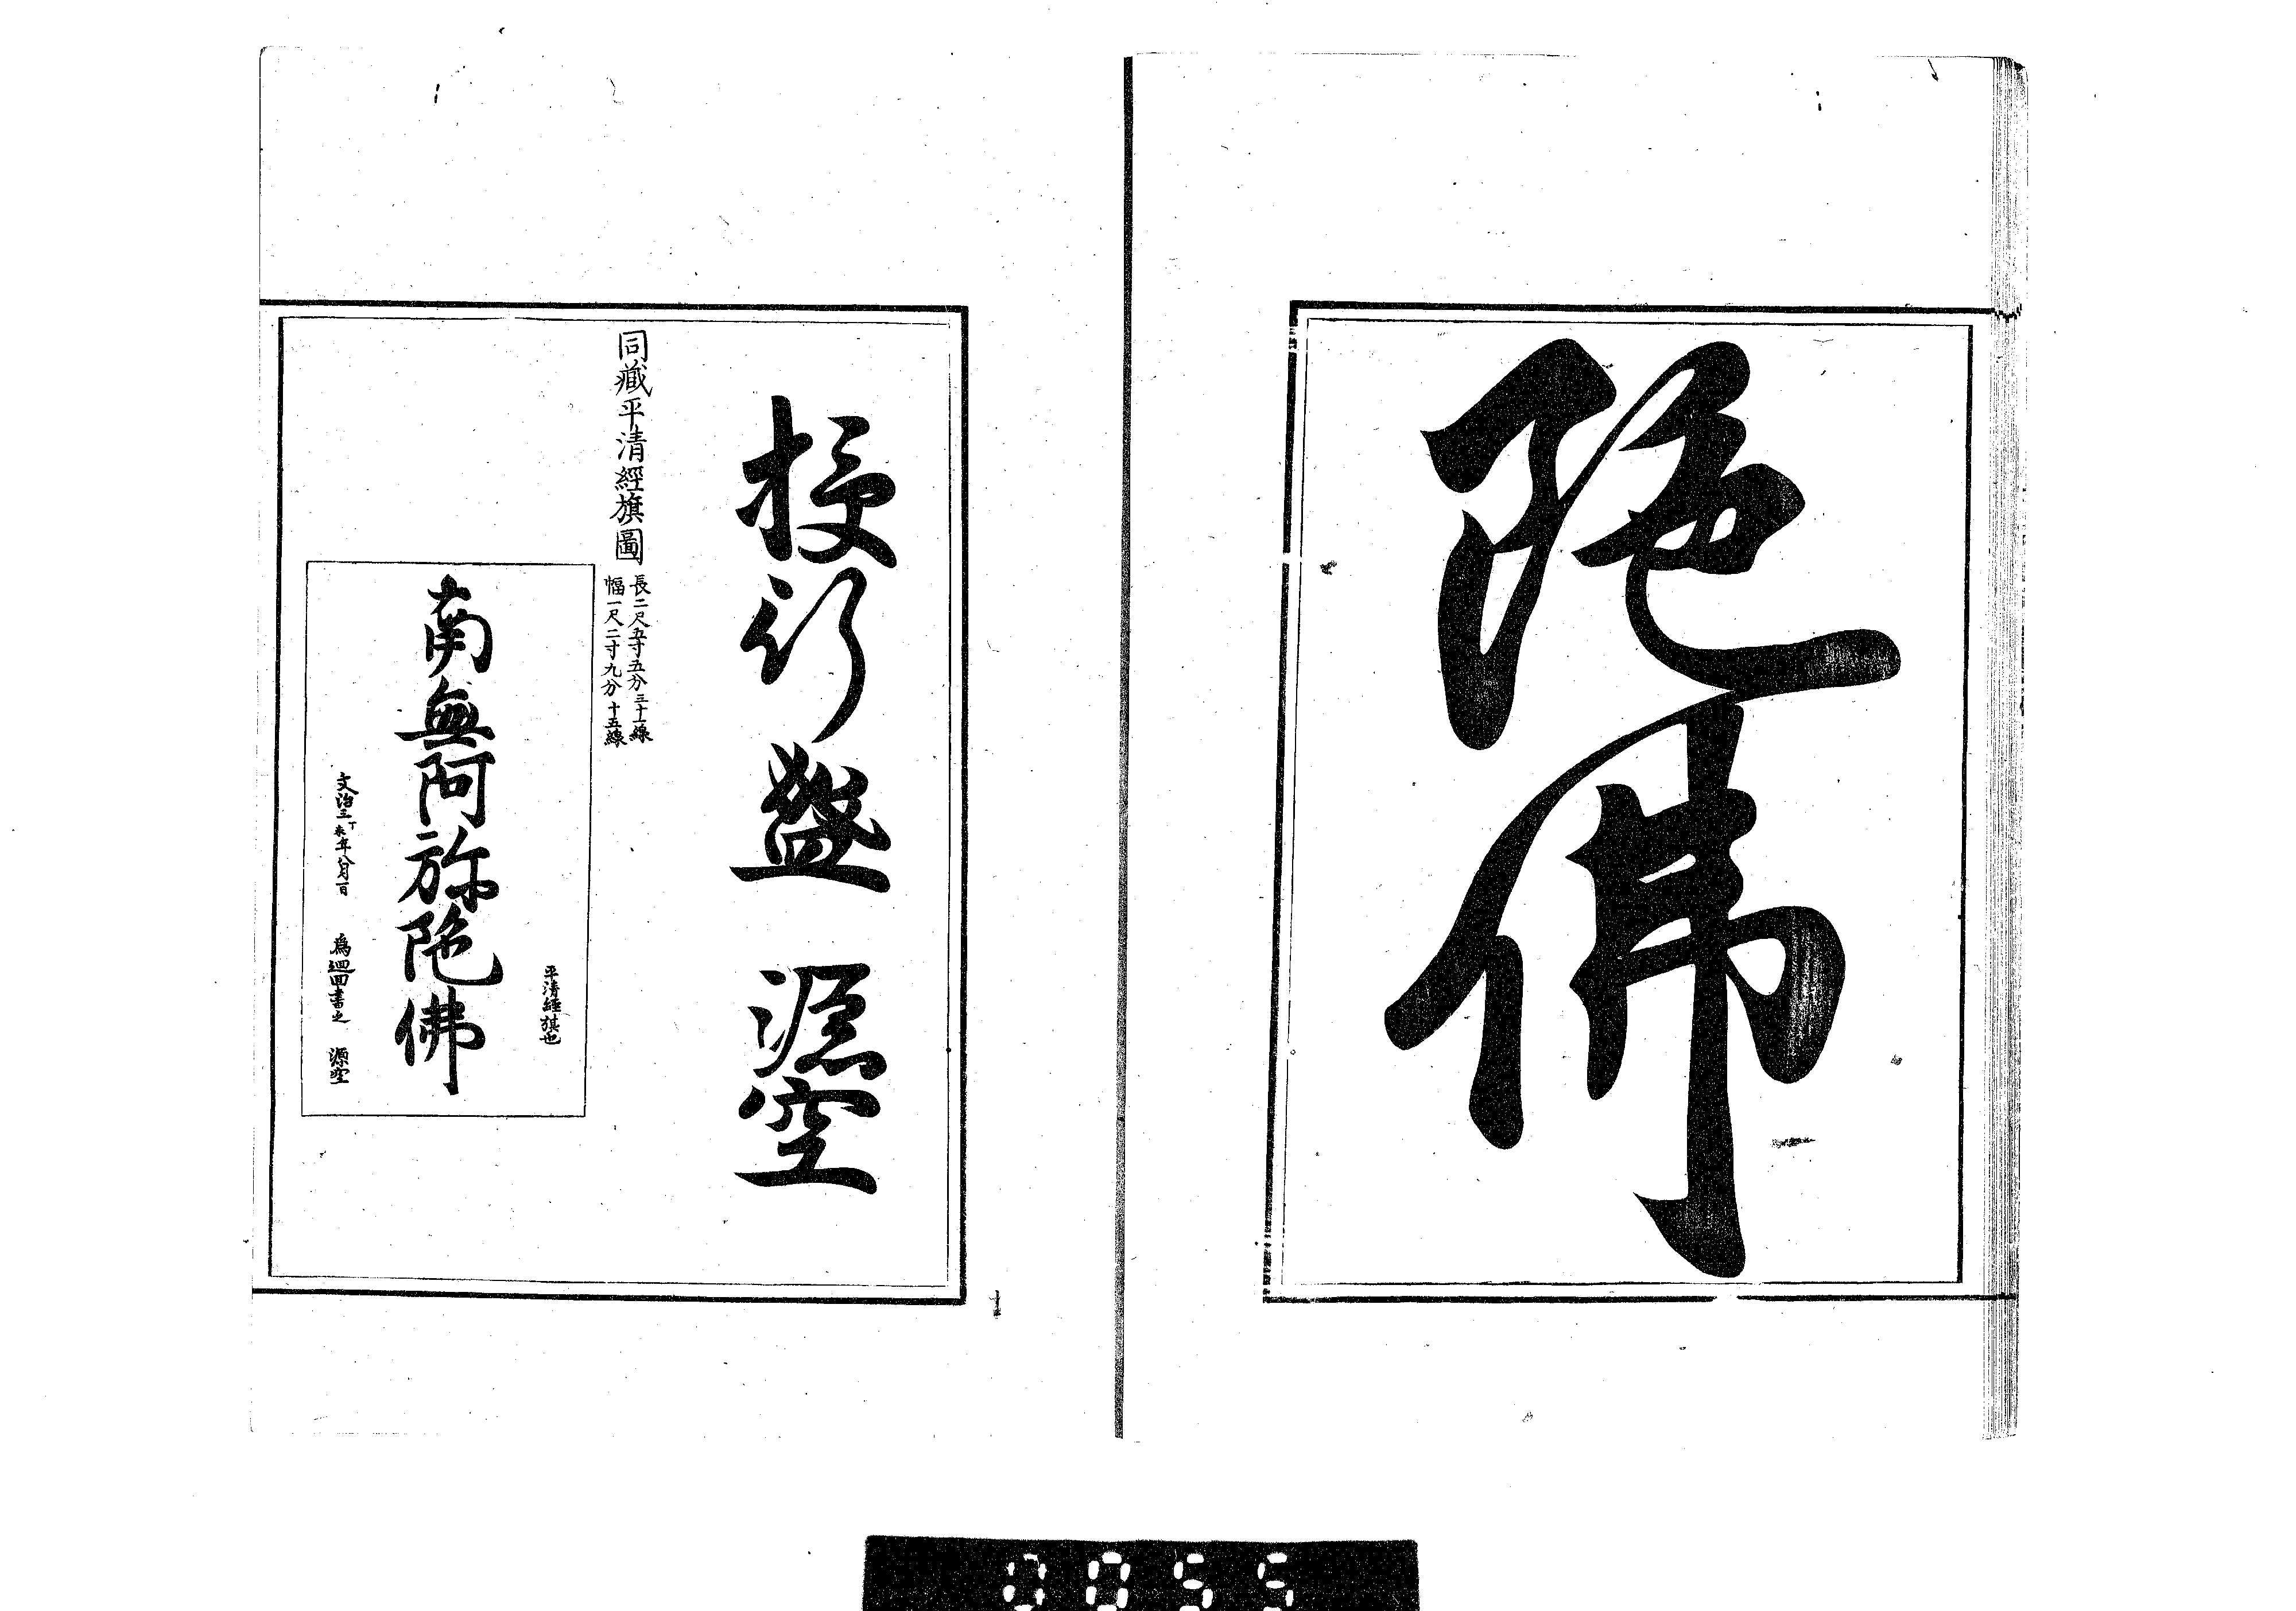 陀佛
授行盤 源空
同藏平清經旗圖 長二尺五寸五分三十一線
幅一尺二寸九分十五線
平清経旗也
南無阿弥陀佛
文治三丁未年八月一日 為迴回書之 源空
0055